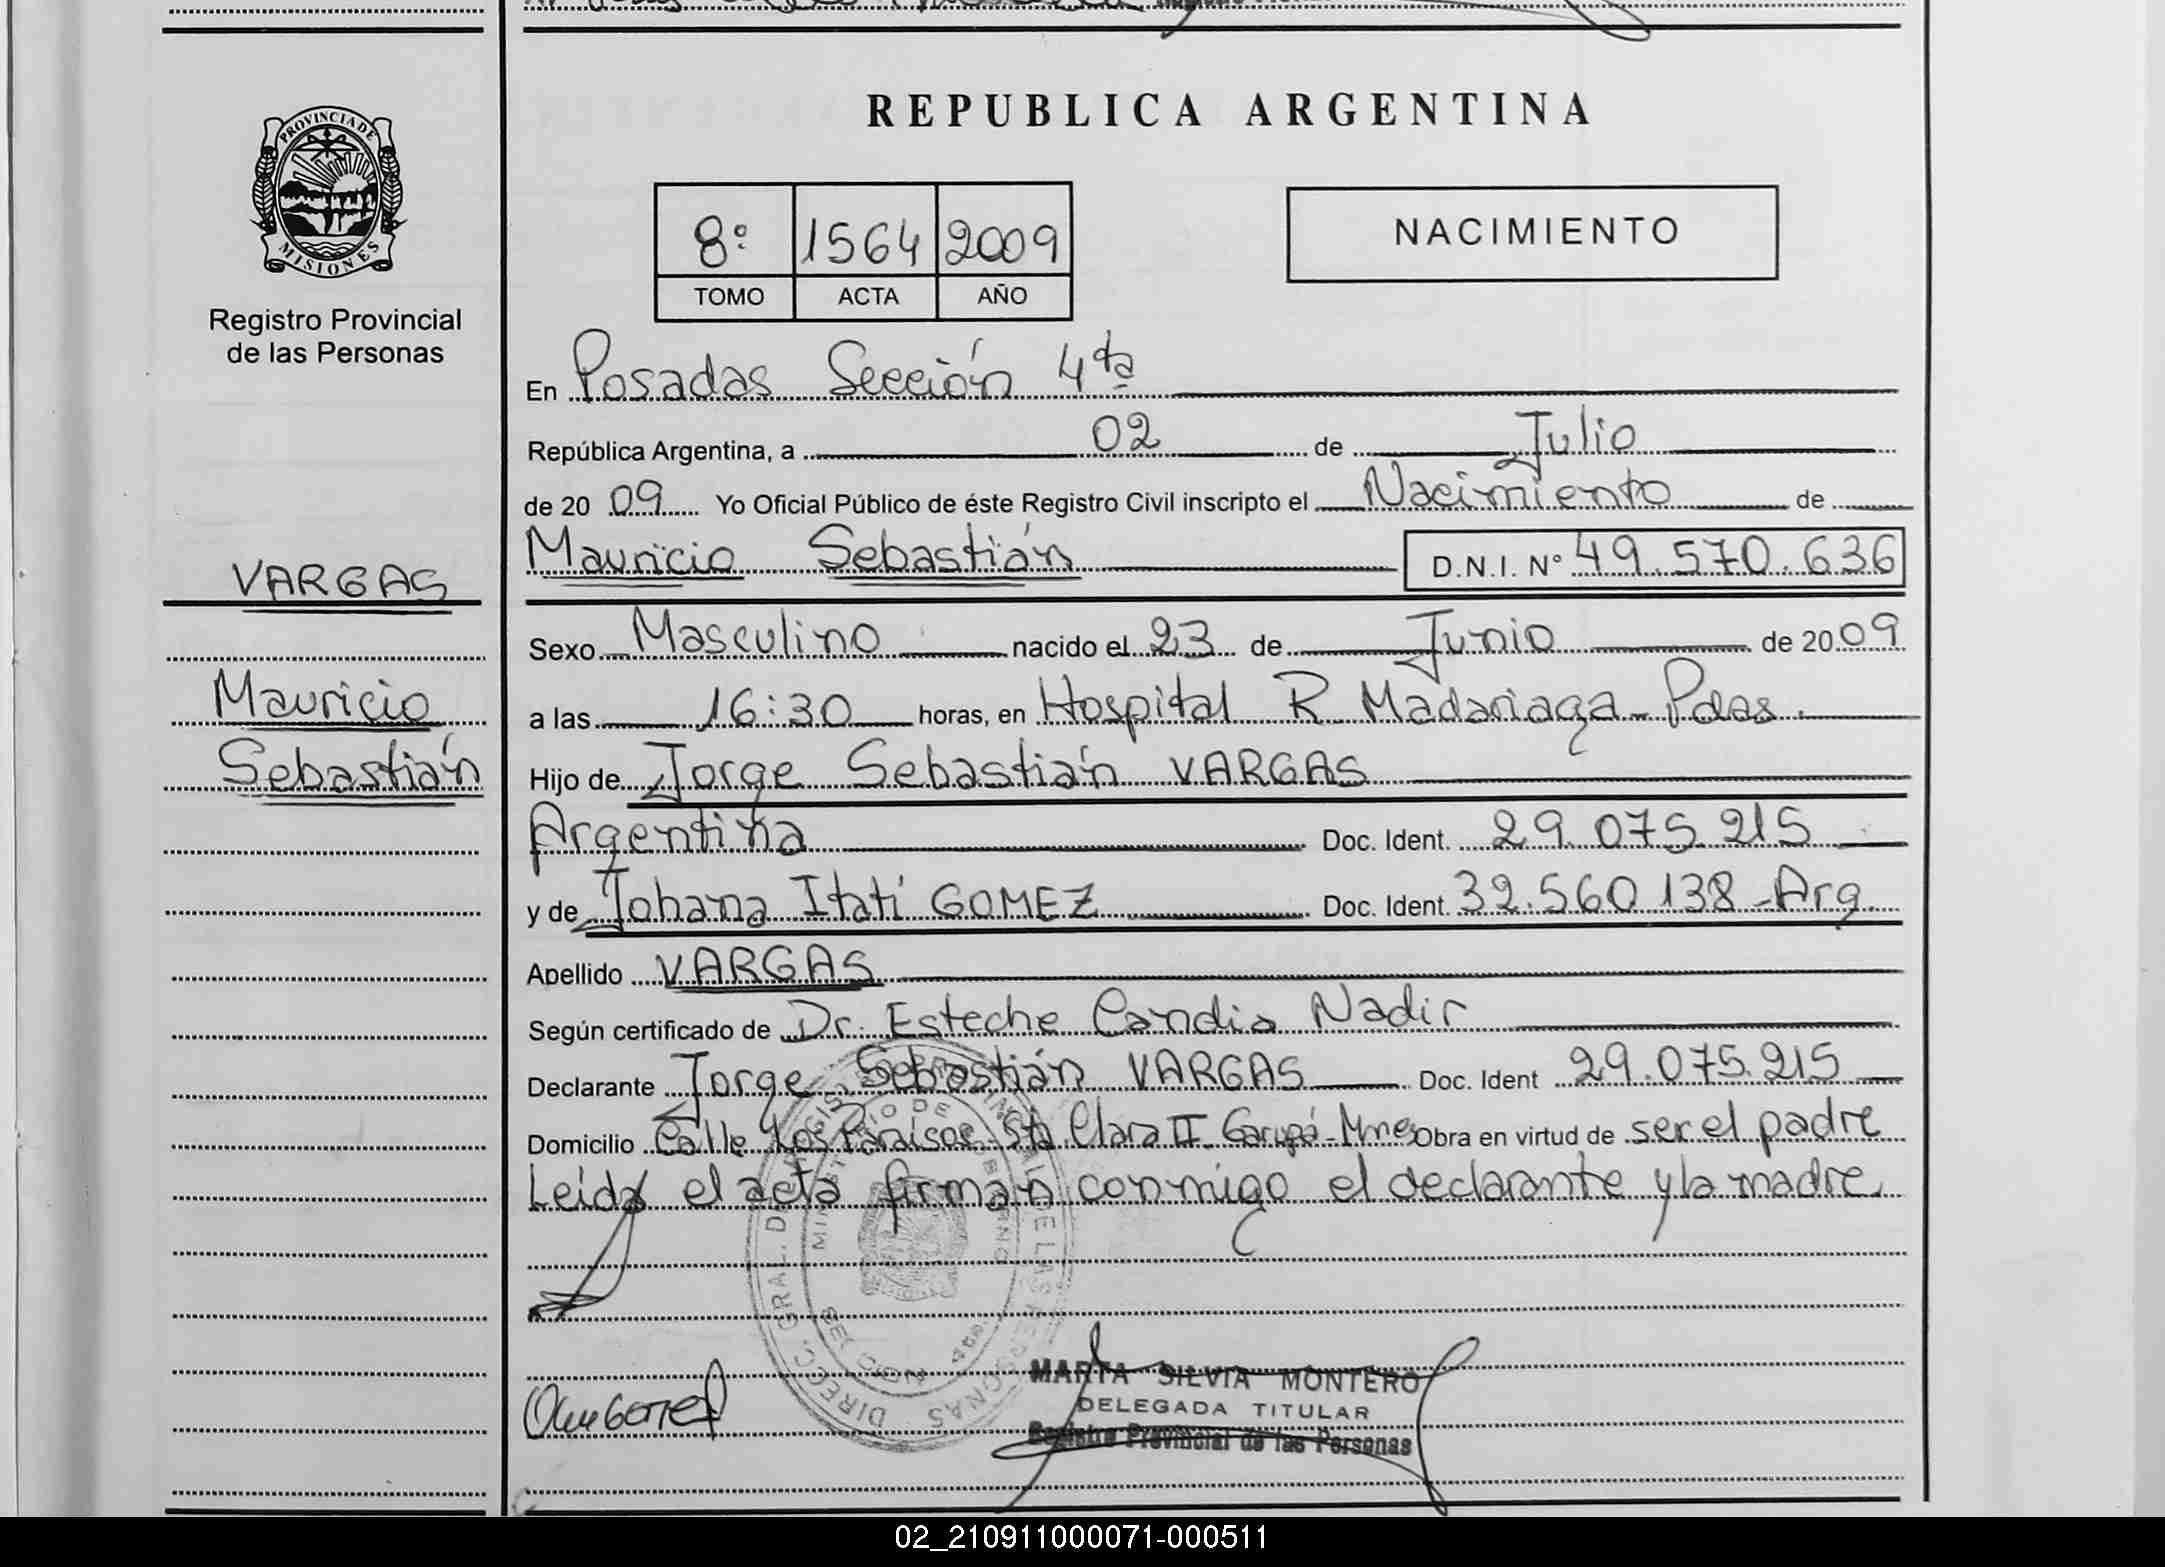 PROVINCIA DE
MISIONES
Registro Provincial
de las Personas
VARGAS
Mauricio
Sebastián
REPUBLICA ARGENTINA
8º 1564 2009
TOMO ACTA AÑO
NACIMIENTO
En Posadas Sección 4ta
República Argentina, a 02 de Julio
de 20 09 Yo Oficial Público de éste Registro Civil inscripto el Nacimiento de
Mauricio Sebastián D.N.I. Nº 49.570.636
Sexo Masculino nacido el 23 de Junio de 2009
a las 16:30 horas, en Hospital R Madariaga - Pdas.
Hijo de Jorge Sebastián VARGAS
Argentina Doc. Ident. 29.075.215
y de Johana Itatí GOMEZ Doc. Ident. 32.560.138 - Arg.
Apellido VARGAS
Según certificado de Dr. Esteche Candia Nadir
Declarante Jorge Sebastián VARGAS Doc. Ident 29.075.215
Domicilio Calle Los Paraisos - Sta Clara II - Garupá - Mnes Obra en virtud de ser el padre
Leída el acta firman conmigo el declarante y la madre
MARTA SILVIA MONTERO
DELEGADA TITULAR
Registro Provincial de las Personas
02_210911000071-000511